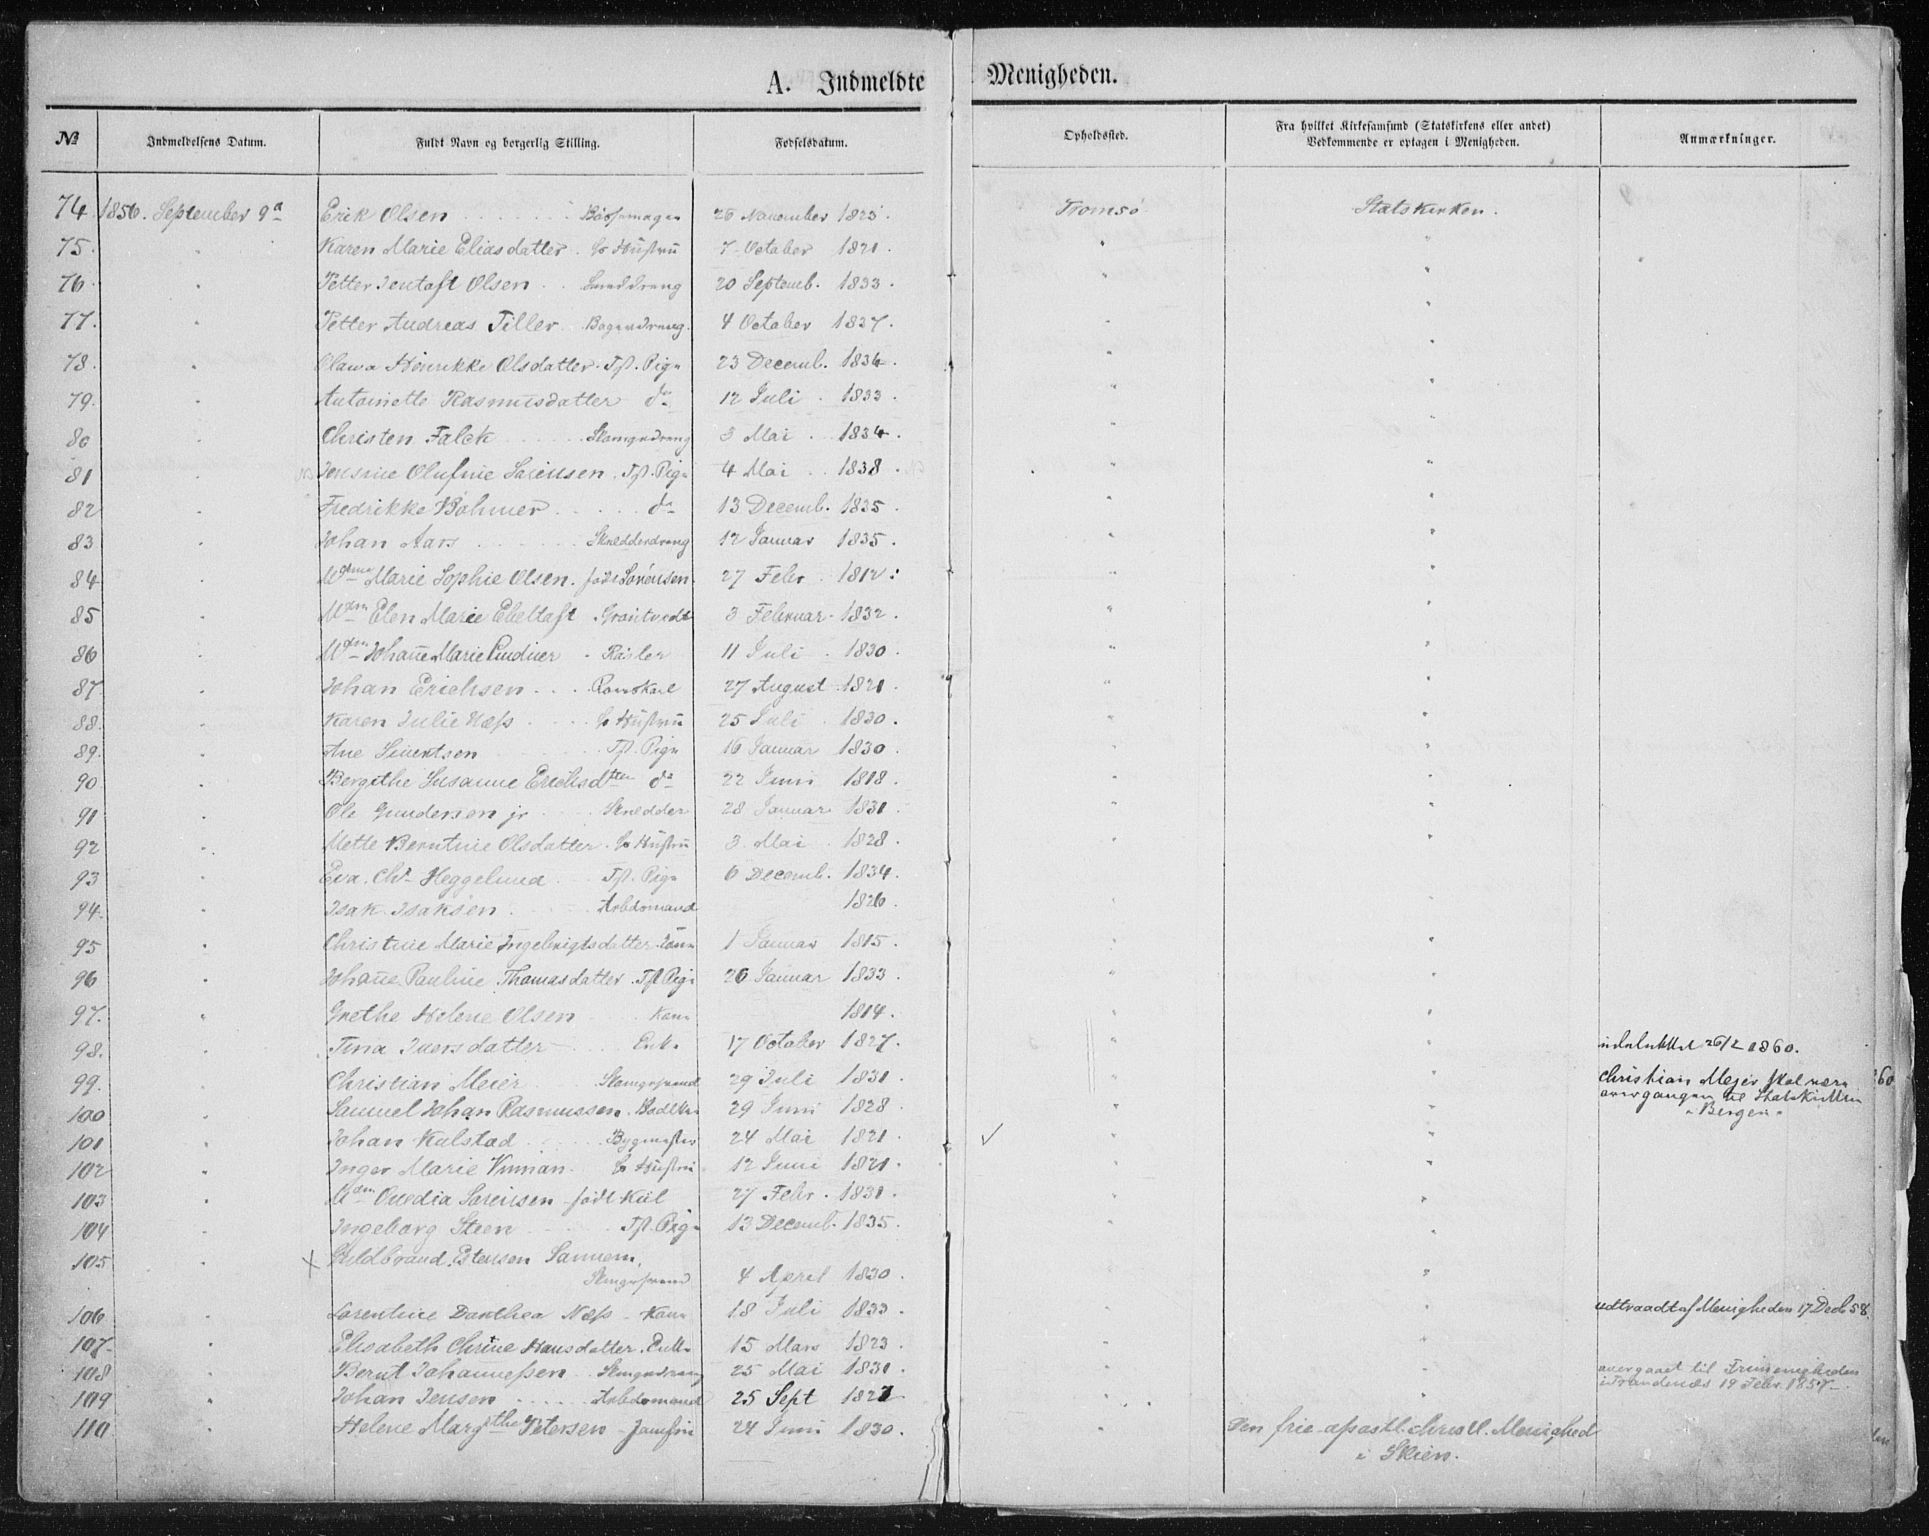 A. Indmeldte Menigheden.
№ Indmeldelsens Datum. Fuldt Navn og borgerlig Stilling. Fødselsdatum. Opholdssted. Fra hvilket Kirkesamfund (Statskirkens eller andet) Anmærkninger.
Vedkommende er optagen i Menigheden.
74. 1856. September 9d Erik Olsen Bøssemager 26 November 1825. Tromsø Statskirken.
75. " Karen Marie Eliasdatter. Hustru 7 October 1821. " "
76. " Petter Olsen Smeddreng 20 Septemb. 1833. " "
77. " Petter Andreas Tiller. Bagerdreng. 4 October 1837. " "
78. " Olava Henrikke Olsdatter. Tjst. Pige 23 Decemb. 1834. " "
79. " Antoinette Rasmusdatter do 12 Juli 1833. " "
80 " Christen Falck 3 Mai 1834. " "
81 " Jensine Olufine Sørensen. Tjst. Pige 4 Mai 1838. " "
82 " Fredrikke Bøhmer do 13 Decemb. 1835. " "
83 " Johan Aars Skrædderdreng 12 Januar 1835. " "
84 " Marie Sophie Olsen. født Sørensen. 27 Febr. 1812. " "
85 " Mdm Elen Marie Ebeltoft Grøntvedt 3 Februar 1832. " "
86 " Mdm Johañe Marie Lindner Røsler 11 Juli 1830. " "
87. " Johan Erichsen 27 August 1821. " "
88. " Karen Julie Næss Hustru 25 Juli 1830. " "
89. " Ane Sivertsen Tjst. Pige 16 Januar 1830. " "
90 " Bergithe Susanne Erichsdtter do 22 Juni 1818. " "
91 " Ole Gundersen jr Skrædder 28 Januar 1831. " "
92 " Mette Berntine Olsdatter. Hustru 3 Mai 1828. " "
93 " Eva. Chr Heggelund Tjst. Pige 6 Decemb. 1834.
94. " Isak Isaksen. Arbdsmand 1826. " "
95 " Christine Marie Ingebrigtsdatter. Kone 1 Januar 1815. " "
96 " Johañe Pauline Thomasdatter. Tjst Pige 26 Januar 1833. " "
97. " Grethe Helene Olsen Kone 1814. " "
98. " Tina Iversdatter Enke 17 October 1827. " " udelukket 26/2 1860.
99. " Christian Meier 29 Juli 1831. " " Christian Mejer skal være
overgangen til Statskirken
100 " Samuel Johan Rasmussen. Bødker 29 Juni 1828. " " i Bergen.
101 " Johan Kulstad Bygmester 24 Mai 1821. "
102 " Inger Marie Hustru 12 Juni 1821. "
103 " Mdm Ovedia Sørensen født Kiil 27 Febr. 1831. "
104 " Ingeborg Steen Tjst. Pige 13 Decemb. 1835. "
105 " Hildbrand Estensen
4 April 1830. "
106 " Lorentine Danthea Næss Kone 18 Juli 1833. " " udtraadt af Menigheden 17 Decb 58.
107. " Elisabeth Chrine Hansdatter. Enke 15 Mars 1823. " "
108 " Bernt Johannessen 25 Mai 1831. " " overgaaet til Frimenigheden
i Trondenæs 19 Febr. 1857.
109 " Johan Jensen Arbdsmand 25 Sept 1827 " "
110 " Helene Margrethe Petersen Jomfru 24 Juni 1830. " Den frie apostl. christl. Menighed
i Skien.